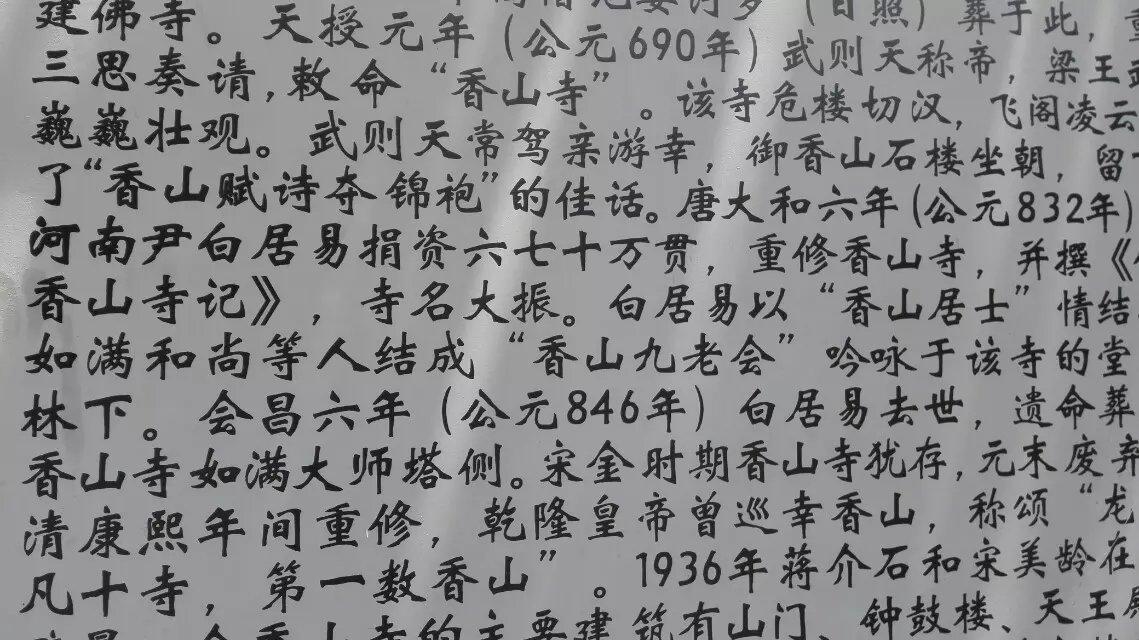 建佛寺。天授元年（公元690年）武则天称帝，梁王武
三思奏请，敕命“香山寺”。该寺危楼切汉，飞阁凌云
巍巍壮观。武则天常驾亲游幸，御香山石楼坐朝，留
了“香山赋诗夺锦袍”的佳话。唐大和六年(公元832年)
河南尹白居易捐资六七十万贯，重修香山寺，并撰《
香山寺记》，寺名大振。白居易以“香山居士”情结
如满和尚等人结成“香山九老会”吟咏于该寺的堂
林下。会昌六年（公元846年）白居易去世，遗命葬
香山寺如满大师塔侧。宋金时期香山寺犹存，元末废弃
清康熙年间重修，乾隆皇帝曾巡幸香山，称颂“龙
凡十寺，第一数香山”。1936年蒋介石和宋美龄在
香山寺的主要建筑有山门、钟鼓楼、天王